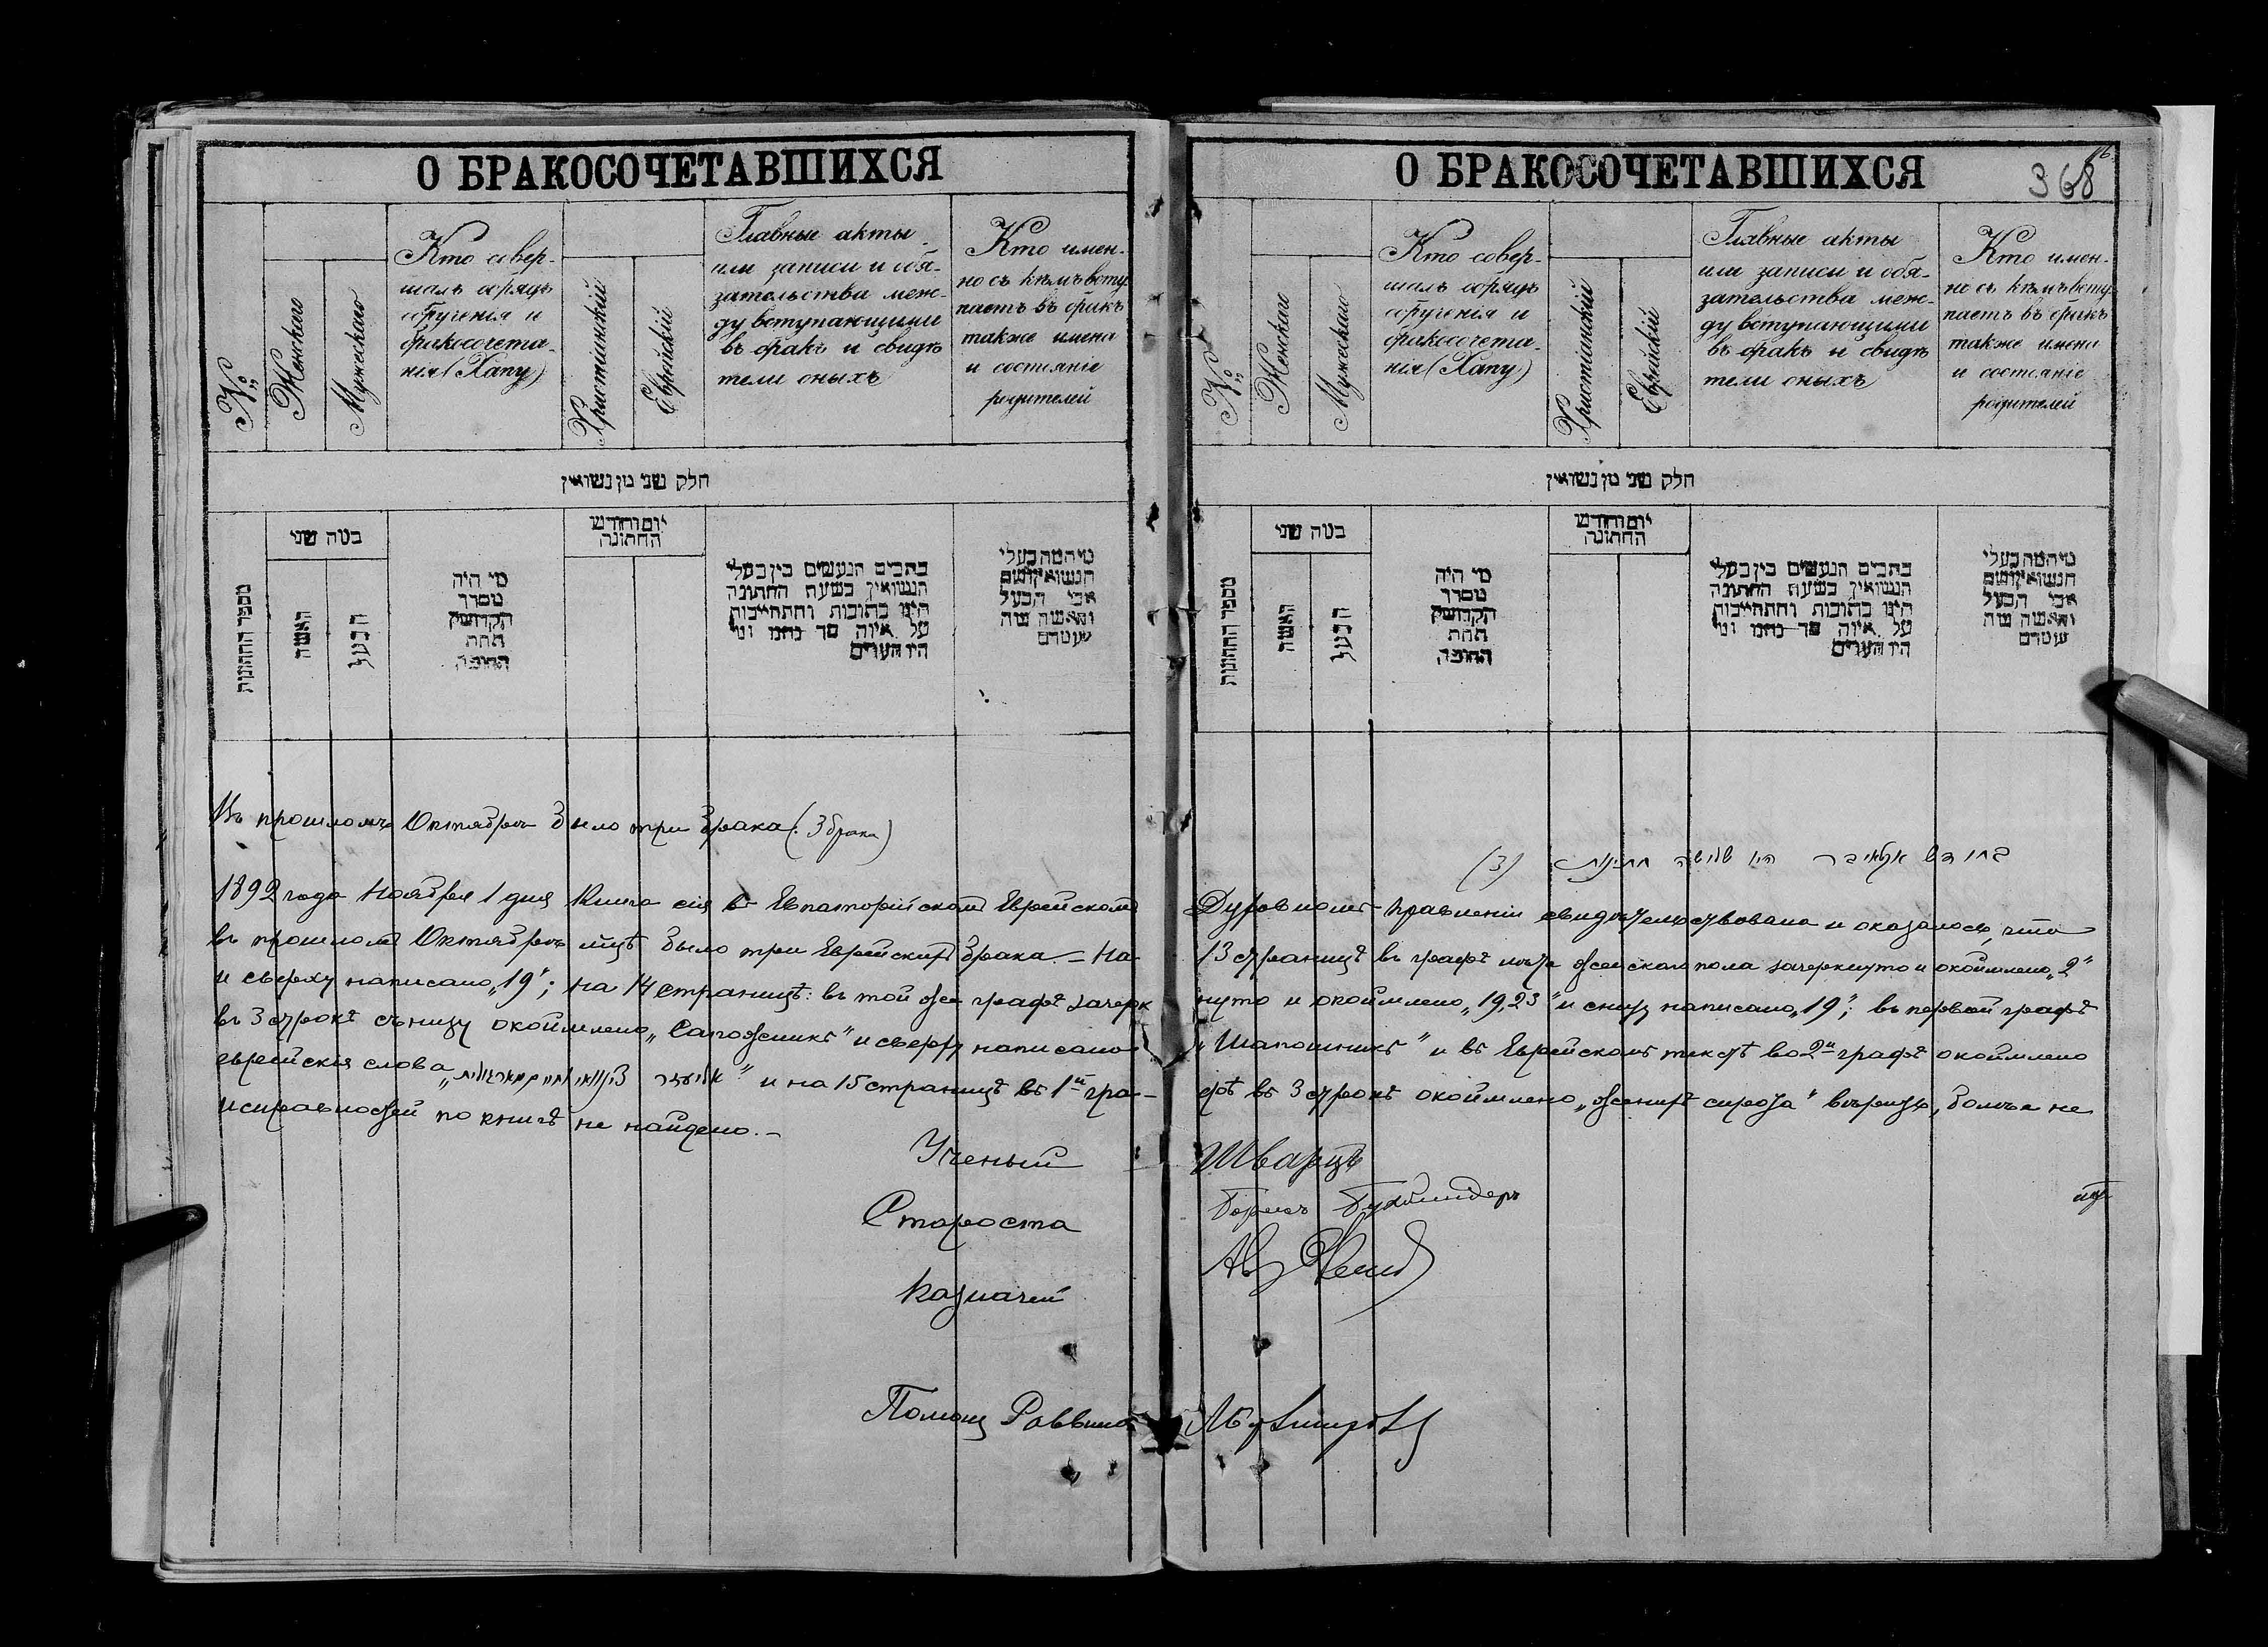 О БРАКОСОЧЕТАВШИХСЯ
№
Женскаго
Мужескаго
Кто совер-
шалъ обрядъ
обрученія и
бракосочета-
нія (Хапу)
Христіанскій
Еврейскій
Главные акты
или записи и обя-
зательства меж-
ду вступающими
въ бракъ и свидѣ
тели оныхъ
Кто имен-
но съ кѣмъ всту
паетъ въ бракъ
также имена
и состояніе
родителей
חלק שני מן נשואין
מספר החתונות
כמה שני
האשה
הבעל
מי היה
מסדר
הקדושין
תחת
החופה
יום וחודש
החתונה
כתבים הנעשים בין בעלי
הנשואין בשעת החתונה
היינו כתובות והתחייבות
על איזה סך נתנו ומי
היו העדים
מי המה בעלי
הנשואין ושם
אבי הבעל
והאשה ומה
מעמדם
Въ прошломъ Октябрѣ было три брака (3 брака)
1892 года Ноября 1 дня Книга сія въ Евпаторійскомъ Еврейскомъ
въ прошломъ Октябрѣ мцѣ было три Еврейскихъ брака. – На
и сверху написано „19“; на 14 страницѣ: въ той же графѣ зачерк
въ 3 строкѣ съ низу окоймлено „Сапожникъ“ и сверху написано
еврейскія слова „ אליעזר “ и на 15 страницѣ въ 1й гра-
исправностей по книгѣ не найдено. –
Ученый
Староста
Казначей
Помощ Раввина
О БРАКОСОЧЕТАВШИХСЯ
368
№
Женскаго
Мужескаго
Кто совер-
шалъ обрядъ
обрученія и
бракосочета-
нія (Хапу)
Христіанскій
Еврейскій
Главные акты
или записи и обя-
зательства меж-
ду вступающими
въ бракъ и свидѣ
тели оныхъ
Кто имен-
но съ кѣмъ всту
паетъ въ бракъ
также имена
и состояніе
родителей
חלק שני מן נשואין
מספר החתונות
כמה שני
האשה
הבעל
מי היה
מסדר
הקדושין
תחת
החופה
יום וחודש
החתונה
כתבים הנעשים בין בעלי
הנשואין בשעת החתונה
היינו כתובות והתחייבות
על איזה סך נתנו ומי
היו העדים
מי המה בעלי
הנשואין ושם
אבי הבעל
והאשה ומה
מעמדם
בחודש אקטאבר היו שלושה חתונות (3)
Духовномъ Правленіи свидѣтельствована и оказалось, что
13 страницѣ въ графѣ лѣта женскаго пола зачеркнуто и окоймлено „2“
нуто и окоймлено „19, 23“ и снизу написано „19“; въ первой графѣ
„Шапошникъ“ и въ Еврейскомъ текстѣ во 2й графѣ окоймлено
фѣ въ 3 строкѣ окоймлено „женихъ сирота“ болѣе не
Шварцъ
Борисъ